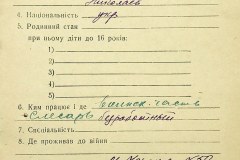 Николаев
4. Національність укр
5. Родинний стан
при ньому діти до 16 років:
1)
2)
3)
4)
5)
6. Ким працює і де воинск. часть
Слесарь
7. Спеціяльність
8. Де проживало до війни